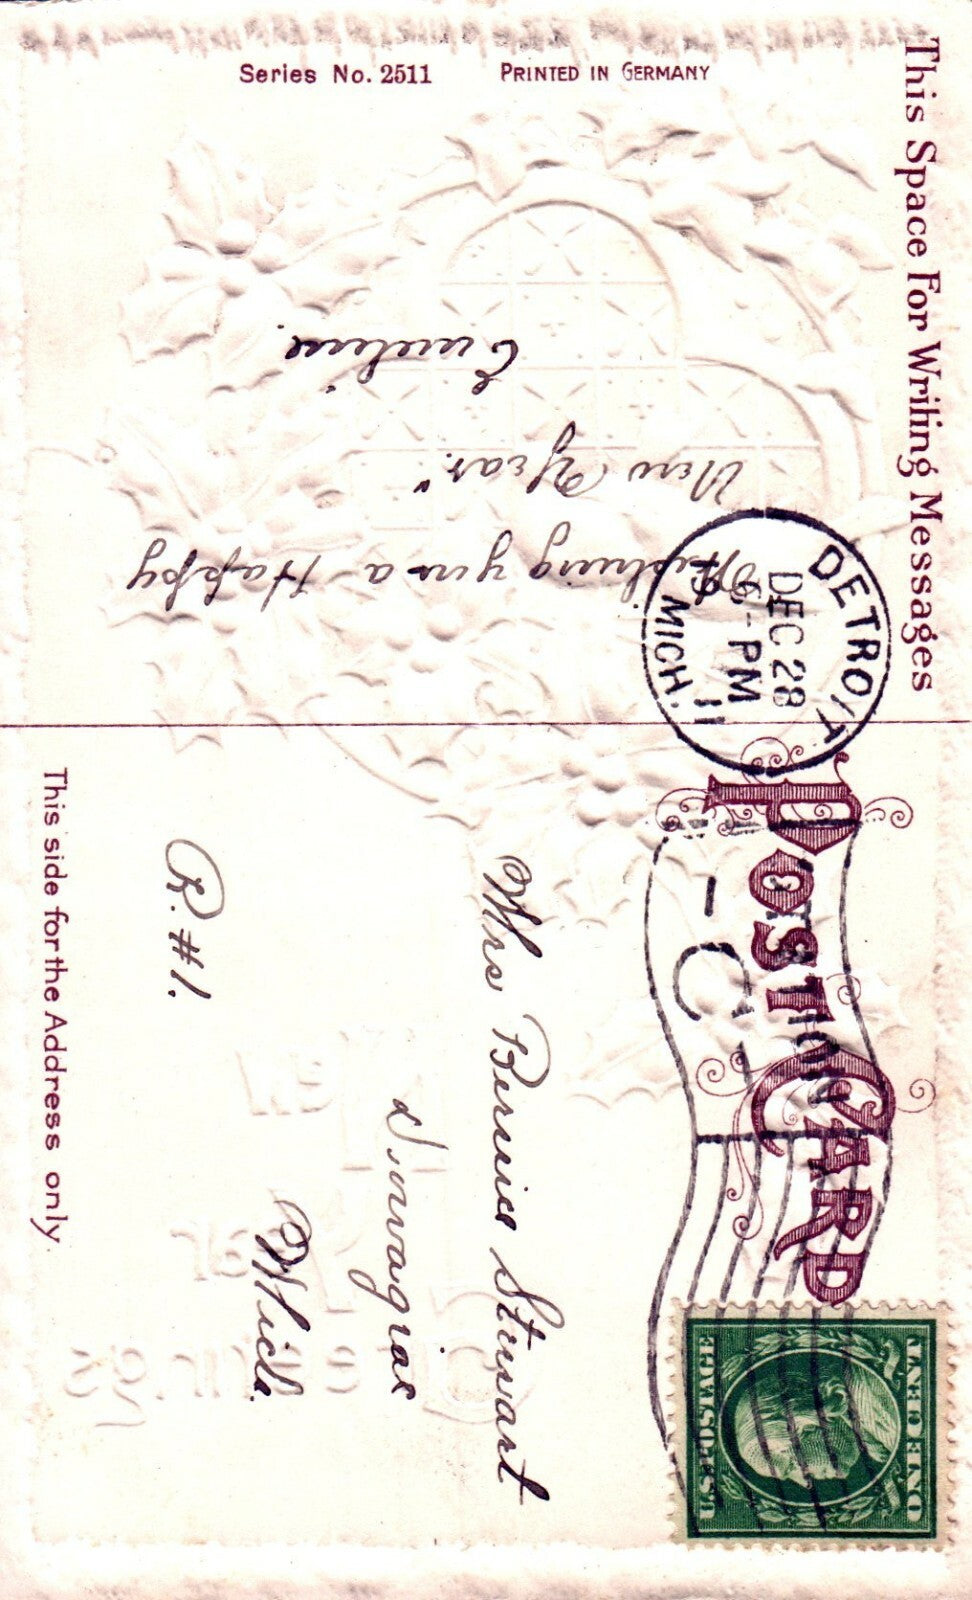 Series No. 2511
PRINTED IN GERMANY
This Space For Writing Messages
POST CARD
This side for the Address only.
DETROIT
DEC 28
6-PM
11
MICH.
STATION
C
U.S. POSTAGE
ONE CENT
Wishing you a Happy
New Year."
Emeline.
Mrs Bernice Stewart
Dowagiac
Mich.
R. #1.